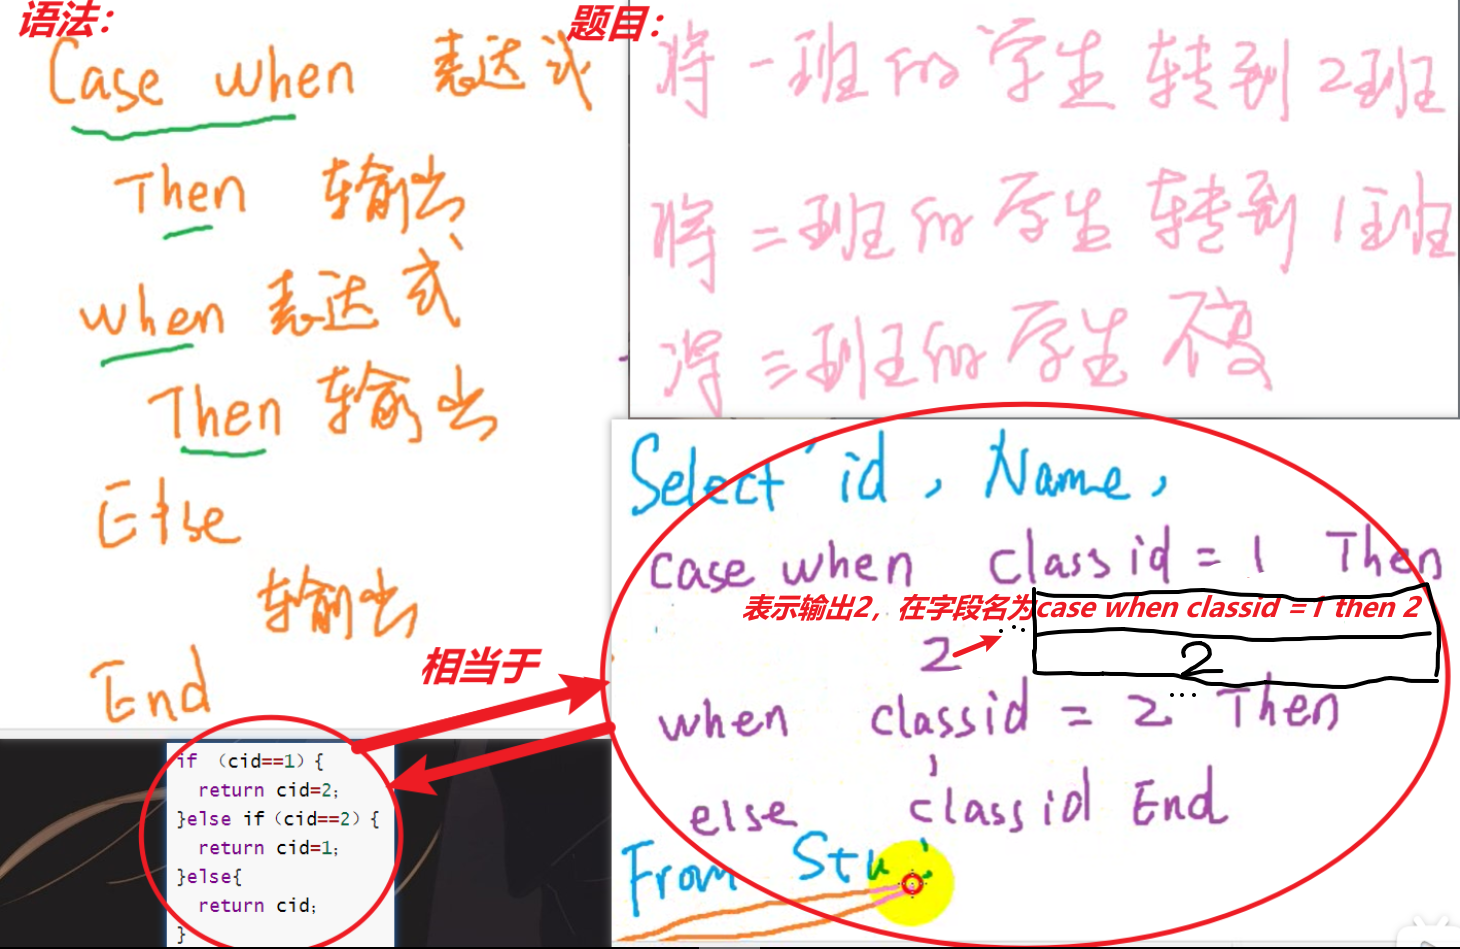 语法：
Case when 表达式
Then 输出
when 表达式
Then 输出
Else
输出
End
题目：
将一班的学生转到2班
将二班的学生转到1班
将三班的学生不变
Select id , Name ,
case when classid = 1 Then
表示输出2，在字段名为case when classid =1 then 2
2
2
when classid = 2 Then
1
else classid End
From Stu ;
相当于
if （cid==1）{
return cid=2;
}else if（cid==2）{
return cid=1;
}else{
return cid;
}